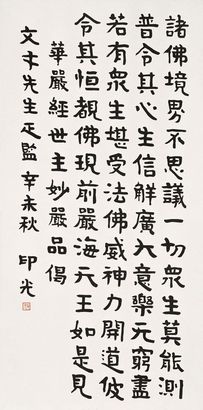 諸佛境界不思議一切眾生莫能測
普令其心生信解廣大意樂无窮盡
若有眾生堪受法佛威神力開道彼
令其恒覩佛現前嚴海天王如是見
華嚴經世主妙嚴品偈
文才先生疋監辛未秋 印光